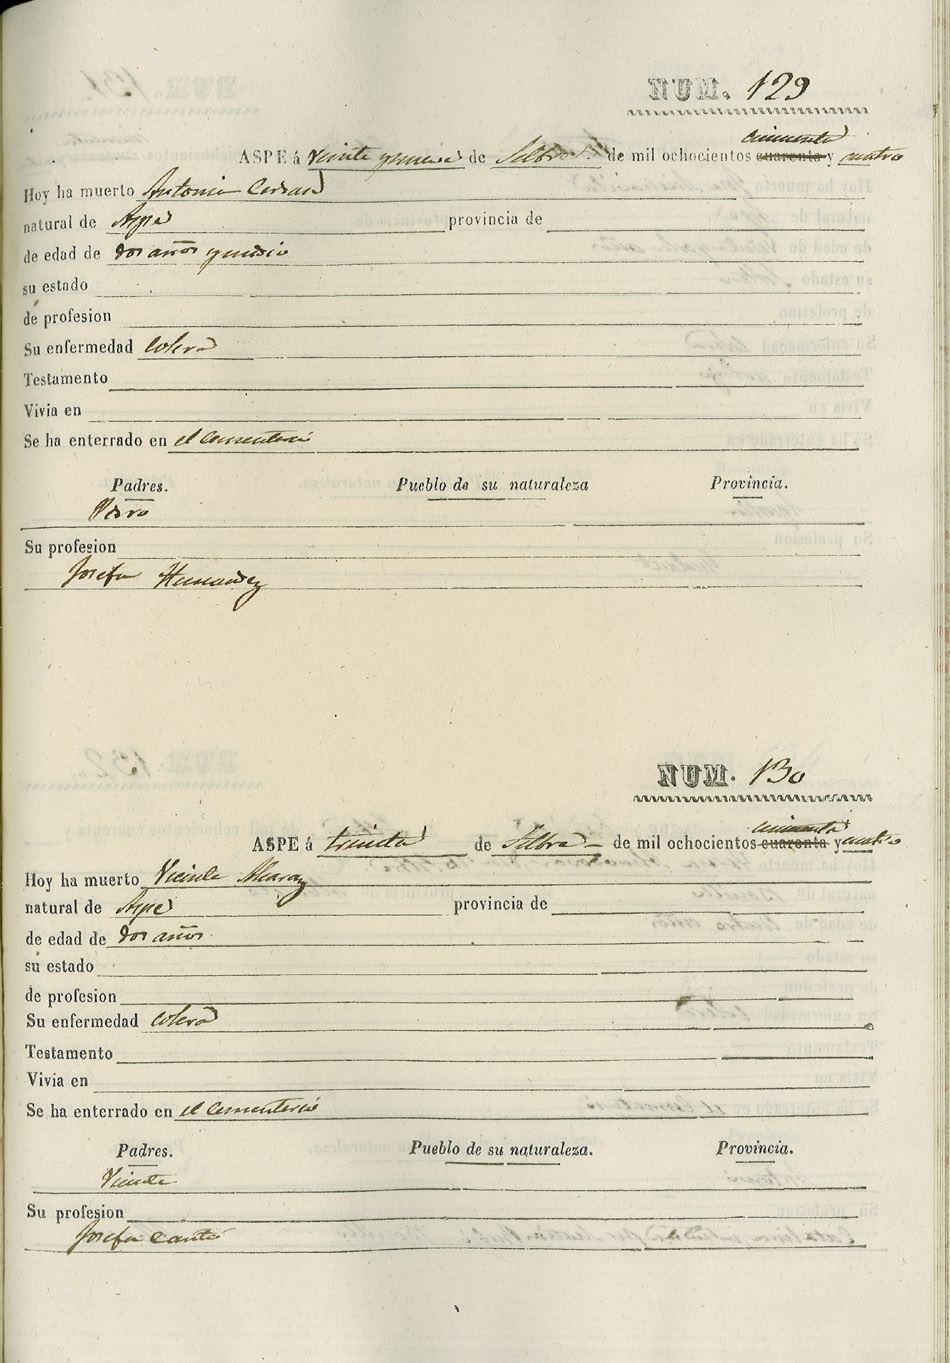 NUM. 129
cincuenta
ASPE á veinte y nueve de Stbre de mil ochocientos cuarenta y cuatro
Hoy ha muerto Antonia
natural de Aspe provincia de
de edad de dos años y medio
su estado
de profesion
Su enfermedad Colera
Testamento
Vivia en
Se ha enterrado en el Cementerio
Padres. Pueblo de su naturaleza Provincia.
Su profesion
Josefa Hernandez
NUM. 130
cincuenta
ASPE á treinta de Stbre de mil ochocientos cuarenta y cuatro
Hoy ha muerto Vicente Alcaraz
natural de Aspe provincia de
de edad de dos años
su estado
de profesion
Su enfermedad Colera
Testamento
Vivia en
Se ha enterrado en el Cementerio
Padres. Pueblo de su naturaleza. Provincia.
Vicente
Su profesion
Josefa Cantó